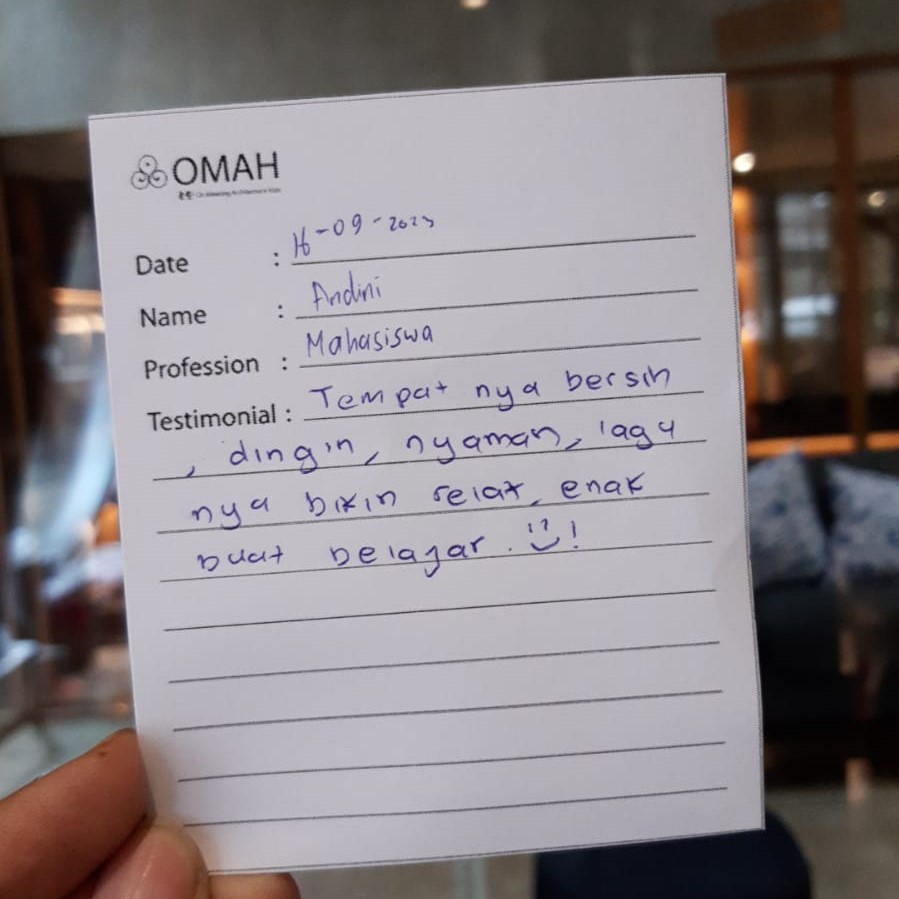 OMAH
Date : 16-09-2023
Name : Andini
Profession : Mahasiswa
Testimonial : Tempat nya bersih
, dingin, nyaman, lagu
nya bikin relax, enak
buat belajar. !